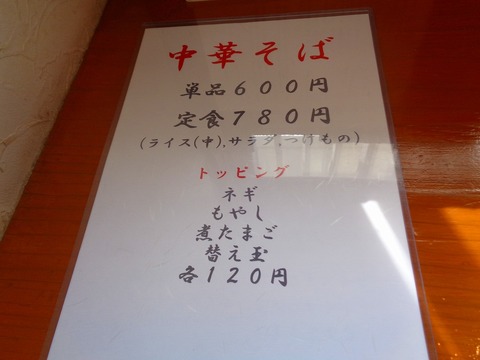 中華そば
単品600円
定食780円
(ライス(中),サラダ,つけもの)
トッピング
ネギ
もやし
煮たまご
替え玉
各120円